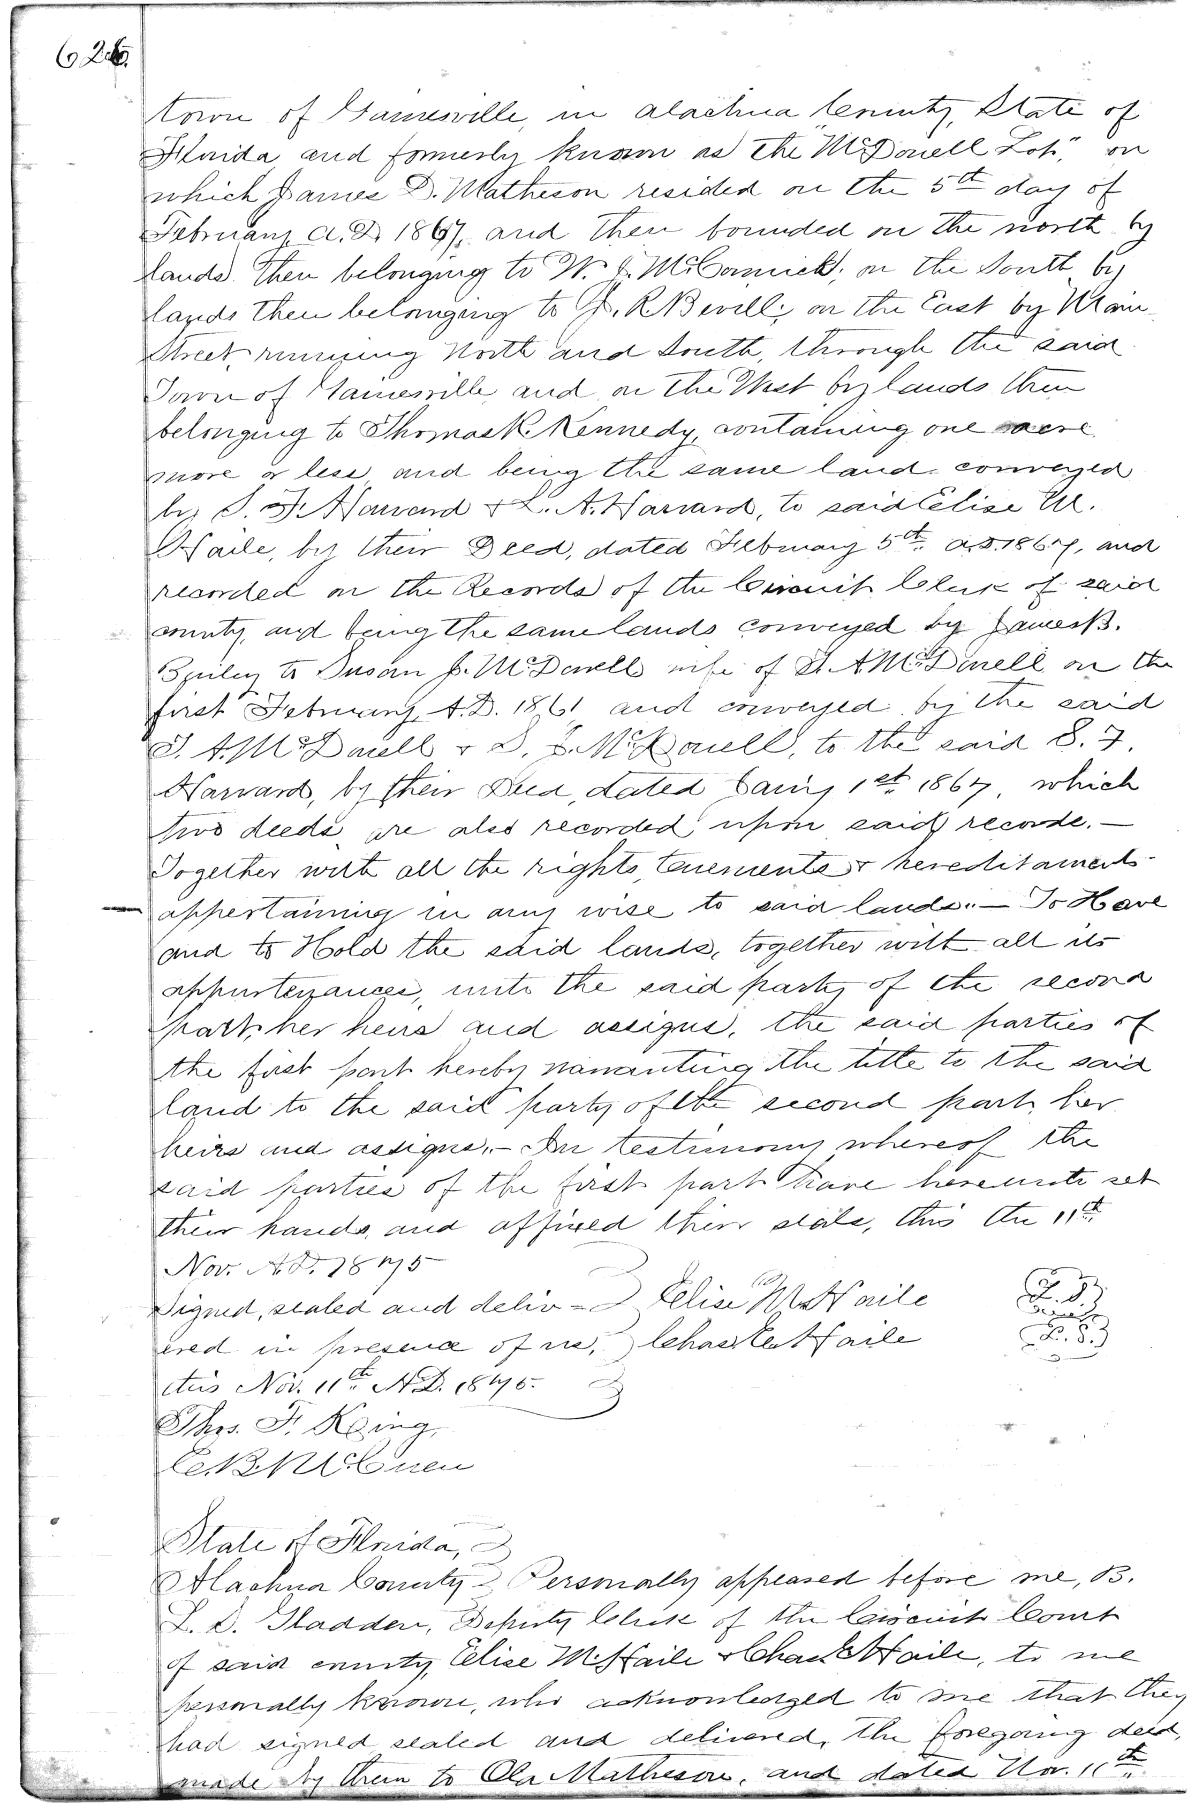 626
town of Gainesville, in Alachua County, State of
Florida, and formerly known as the "McDowell Lot", on
which James D. Matheson resided on the 5th day of
February A.D. 1867, and then bounded on the north by
lands then belonging to W. J. McCormick, on the South by
lands then belonging to J. R Bevill, on the East by Main
Street, running North and South, through the said
Town of Gainesville, and on the West by lands then
belonging to Thomas K. Kennedy, containing one acre
more or less, and being the same land conveyed
by S. F. Harvard & L. A. Harvard, to said Elise M.
Haile, by their Deed, dated February 5th A.D. 1867, and
recorded on the Records of the Circuit Clerk of said
county, and being the same lands conveyed by James B.
Bailey to Susan J. McDowell wife of T. A McDowell on the
first February A.D. 1861 and conveyed by the said
T. A. McDowell & S. J. McDowell, to the said S. F.
Harvard, by their Deed, dated Jan'y 1st 1867, which
two deeds are also recorded upon said records.—
Together with all the rights, tenements & hereditaments
appertaining in any wise to said lands.— To Have
and to Hold the said lands, together with all its
appurtenances, unto the said party of the second
part, her heirs and assigns, the said parties of
the first part hereby warranting the title to the said
land to the said party of the second part, her
heirs and assigns.— In testimony whereof the
said parties of the first part have hereunto set
their hands, and affixed their seals, this the 11th
Nov. A.D. 1875
Signed, sealed and deliv= Elise M. Haile L.S.
ered in presence of us, Chas. E. Haile L.S.
this Nov. 11th A.D. 1875.
Thos. F. King,
C. B. McCuen
State of Florida,
Alachua County Personally appeased before me, B.
L. D. Gladden, Deputy Clerk of the Circuit Court
of said county, Elise M. Haile & Chas. E. Haile, to me
personally known, who acknowledged to me that they
had signed sealed and delivered, the foregoing deed,
made by them to Matheson, and dated Nov. 11th